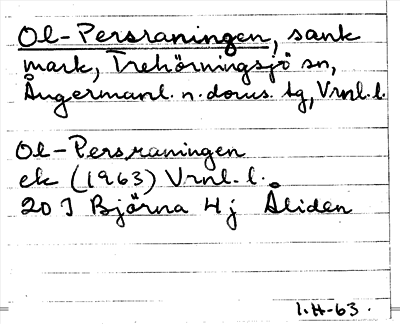 Ol-Persraningen, sank
mark, Trehörningsjö sn,
Ångermanl. n. doms. tg, Vrnl. l.
Ol-Persraningen
ek (1963) Vrnl. l.
20 J Björna 4j Åliden
I.H-63.